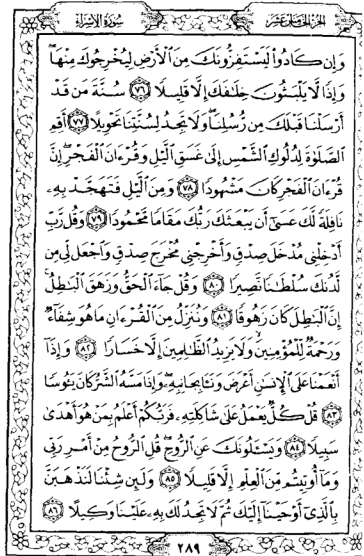 الجزء الخامس عشر سورة الإسراء
وَإِن كَادُوا۟ لَيَسْتَفِزُّونَكَ مِنَ ٱلْأَرْضِ لِيُخْرِجُوكَ مِنْهَا ۖ
وَإِذًا لَّا يَلْبَثُونَ خِلَـٰفَكَ إِلَّا قَلِيلًا ٧٦ سُنَّةَ مَن قَدْ
أَرْسَلْنَا قَبْلَكَ مِن رُّسُلِنَا ۖ وَلَا تَجِدُ لِسُنَّتِنَا تَحْوِيلًا ٧٧ أَقِمِ
ٱلصَّلَوٰةَ لِدُلُوكِ ٱلشَّمْسِ إِلَىٰ غَسَقِ ٱلَّيْلِ وَقُرْءَانَ ٱلْفَجْرِ ۖ إِنَّ
قُرْءَانَ ٱلْفَجْرِ كَانَ مَشْهُودًا ٧٨ وَمِنَ ٱلَّيْلِ فَتَهَجَّدْ بِهِۦ
نَافِلَةً لَّكَ عَسَىٰٓ أَن يَبْعَثَكَ رَبُّكَ مَقَامًا مَّحْمُودًا ٧٩ وَقُل رَّبِّ
أَدْخِلْنِى مُدْخَلَ صِدْقٍ وَأَخْرِجْنِى مُخْرَجَ صِدْقٍ وَٱجْعَل لِّى مِن
لَّدُنكَ سُلْطَـٰنًا نَّصِيرًا ٨٠ وَقُلْ جَآءَ ٱلْحَقُّ وَزَهَقَ ٱلْبَـٰطِلُ ۚ
إِنَّ ٱلْبَـٰطِلَ كَانَ زَهُوقًا ٨١ وَنُنَزِّلُ مِنَ ٱلْقُرْءَانِ مَا هُوَ شِفَآءٌ
وَرَحْمَةٌ لِّلْمُؤْمِنِينَ ۙ وَلَا يَزِيدُ ٱلظَّـٰلِمِينَ إِلَّا خَسَارًا ٨٢ وَإِذَآ
أَنْعَمْنَا عَلَى ٱلْإِنسَـٰنِ أَعْرَضَ وَنَـَٔا بِجَانِبِهِۦ ۖ وَإِذَا مَسَّهُ ٱلشَّرُّ كَانَ يَـُٔوسًا
٨٣ قُلْ كُلٌّ يَعْمَلُ عَلَىٰ شَاكِلَتِهِۦ فَرَبُّكُمْ أَعْلَمُ بِمَنْ هُوَ أَهْدَىٰ
سَبِيلًا ٨٤ وَيَسْـَٔلُونَكَ عَنِ ٱلرُّوحِ ۖ قُلِ ٱلرُّوحُ مِنْ أَمْرِ رَبِّى
وَمَآ أُوتِيتُم مِّنَ ٱلْعِلْمِ إِلَّا قَلِيلًا ٨٥ وَلَئِن شِئْنَا لَنَذْهَبَنَّ
بِٱلَّذِىٓ أَوْحَيْنَآ إِلَيْكَ ثُمَّ لَا تَجِدُ لَكَ بِهِۦ عَلَيْنَا وَكِيلًا ٨٦
٢٨٩